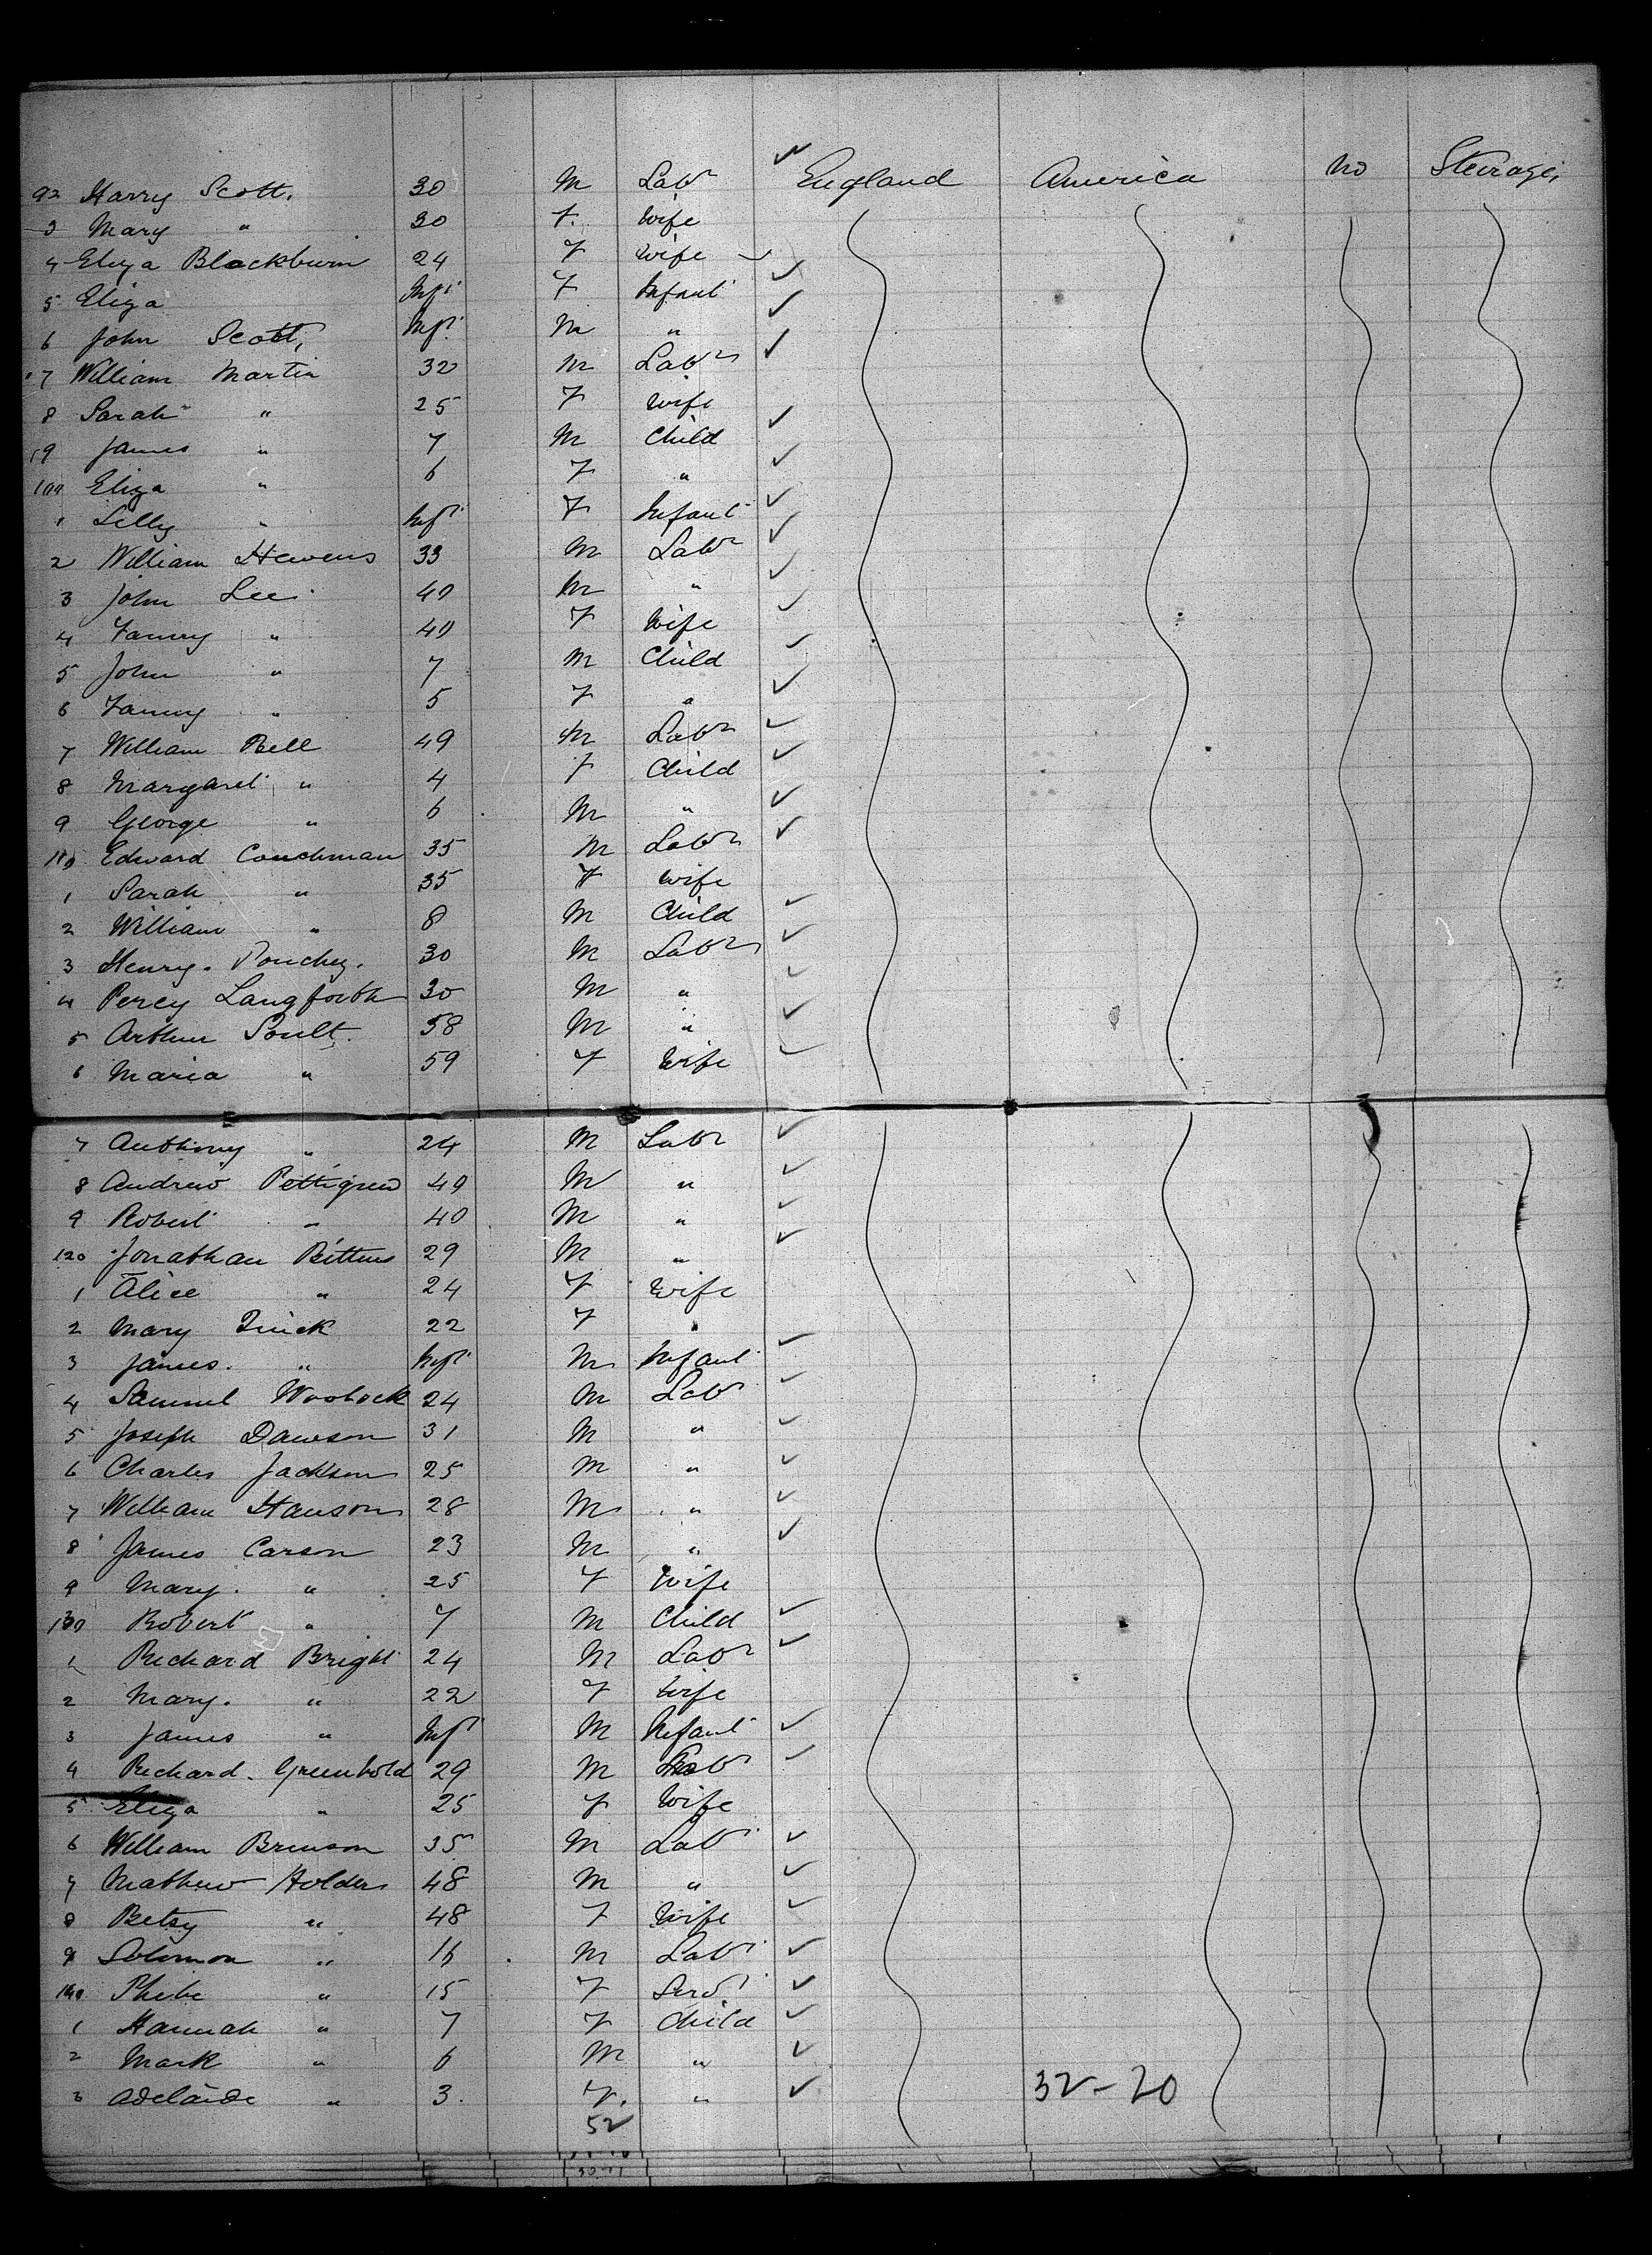 92 Harry Scott. 30 M Labr England America No Steerage,
3 Mary " 30 F. Wife
4 Eliza Blackburn 24 F Wife
5 Eliza Inft F Infant
6 John Scott, Inft M "
7 William Martin 32 M Labr
8 Sarah " 25 F Wife
9 James " 7 M Child
100 Eliza " 6 F "
1 Lilly " Inft F Infant
2 William Stevens 33 M Labr
3 John Lee 40 M "
4 Fanny " 40 F Wife
5 John " 7 M Child
6 Fanny " 5 F "
7 William Bell 49 M Labr
8 Margaret " 4 F Child
9 George " 6 M "
110 Edward Couchman 35 M Labr
1 Sarah " 35 F Wife
2 William " 8 M Child
3 Henry. 30 M Labr
4 Percy Langforth 30 M "
5 Arthur Soult. 58 M "
6 Maria " 59 F Wife
7 Anthony " 24 M Labr
8 Andrew Pettigrew 49 M "
9 Robert " 40 M "
120 Jonathan 29 M "
1 Alice " 24 F Wife
2 Mary Quick 22 F "
3 James. " Inft M Infant
4 Samuel 24 M Labr
5 Joseph Dawson 31 M "
6 Charles Jackson 25 M "
7 William Hanson 28 M "
8 James Carson 23 M "
9 Mary. " 25 F Wife
130 Robert " 7 M Child
1 Richard Bright 24 M Labr
2 Mary. " 22 F Wife
3 James " Inft M Infant
4 Richard. Greenhold 29 M Labr
5 Eliza " 25 F Wife
6 William Brinson 35 M Labr
7 Mathew Holders 48 M "
8 Betsy " 48 F Wife
9 Solomon " 16 M Labr
140 Phebe " 15 F Servt
1 Hannah " 7 F Child
2 Mark " 6 M "
3 Adelaide " 3. F. " 32-20
52